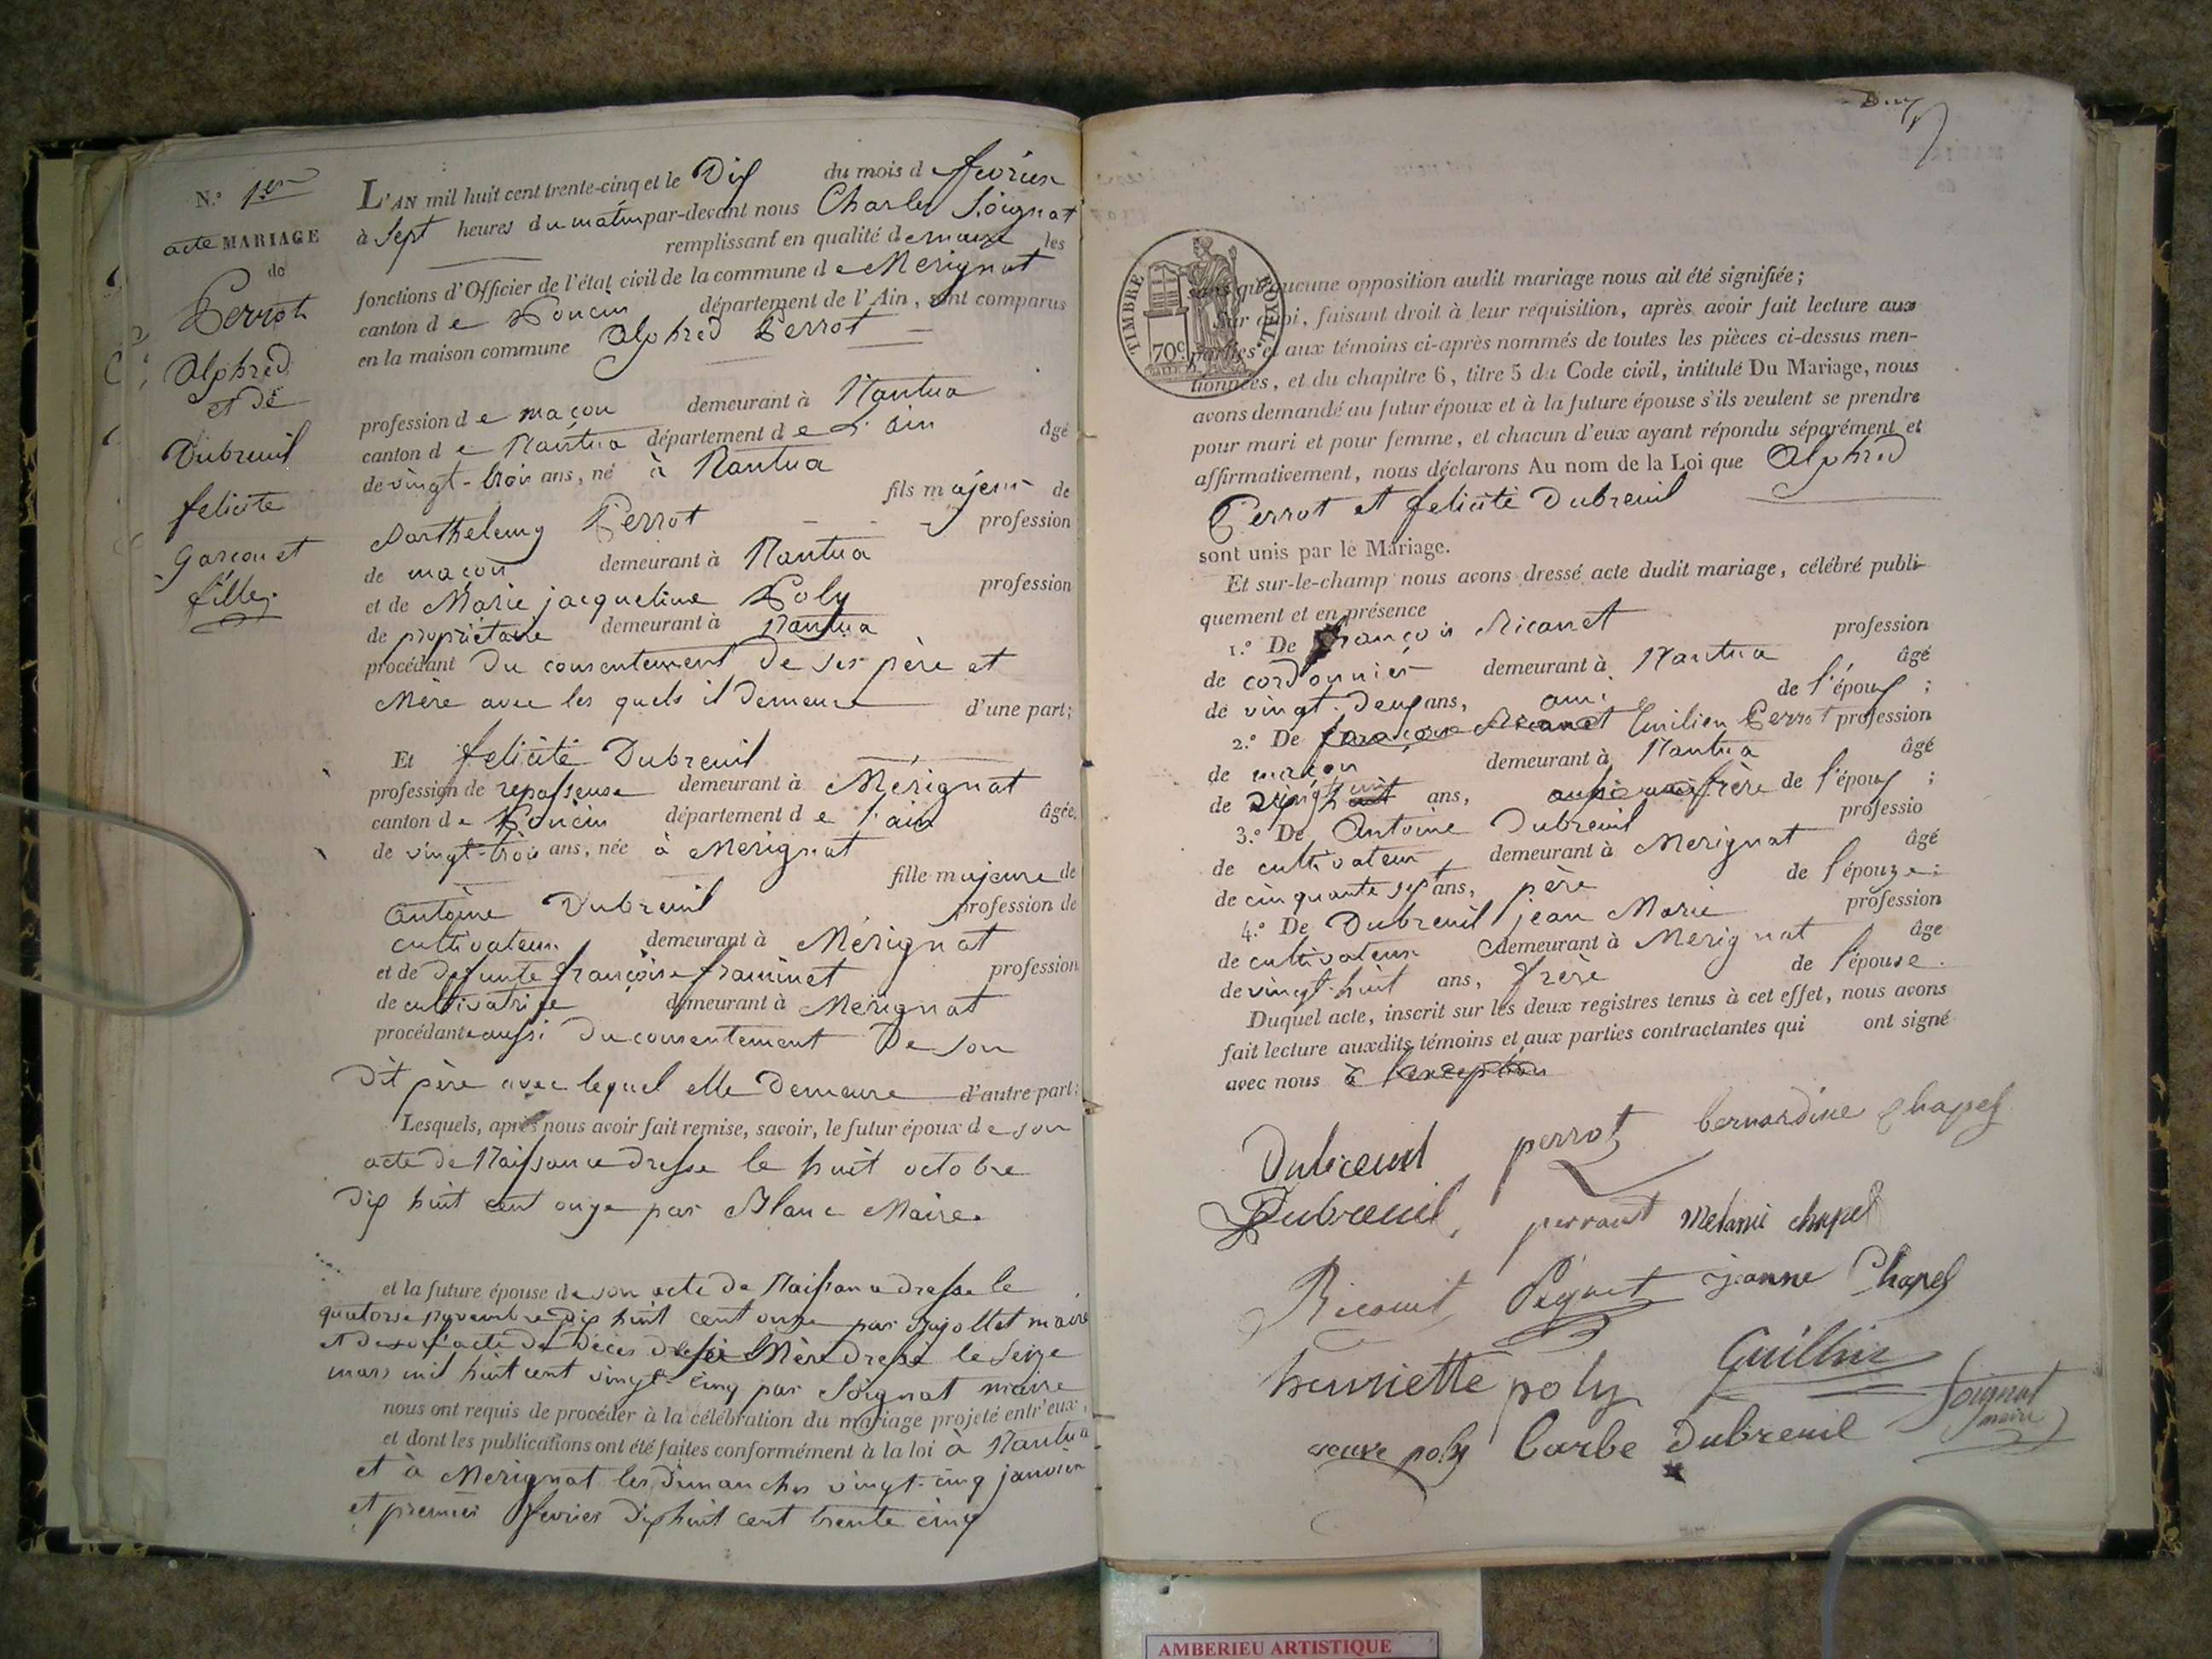 N.° 1er
acte MARIAGE
de
Perrot
Alphred
et de
Dubreuil
felicite
Garcon et
fille.
L'AN mil huit cent trente-cinq et le Dix du mois de fevrier
à Sept heures du matin par-devant nous Charles Soignat
remplissant en qualité de maire les
fonctions d'Officier de l'état civil de la commune de Merignat
canton de Poncin département de l'Ain, sont comparus
en la maison commune Alphred Perrot
profession de maçon demeurant à Nantua
canton de Nantua département de L'ain âgé
de vingt-trois ans, né à Nantua
fils majeur de
Barthelemy Perrot profession
de maçon demeurant à Nantua
et de Marie jacqueline Poly profession
de propriétaire demeurant à Nantua
procédant du consentement de ses père et
Mère avec les quels il demeure d'une part;
Et felicité Dubreuil
profession de repasseuse demeurant à Mérignat
canton de Poncin département de l'ain âgée
de vingt-trois ans, née à Merignat
fille majeure de
Antoine Dubreuil profession de
cultivateur demeurant à Mérignat
et de defunte françoise framinet profession
de cultivatrice demeurant à Merignat
procédante aussi du consentement de son
dit père avec lequel elle demeure d'autre part:
Lesquels, après nous avoir fait remise, savoir, le futur époux de son
acte de Naissance dresse le huit octobre
dix huit cent onze par Blanc Maire
et la future épouse de son acte de Naissance dresse le
quatorse novembre dix huit cent onze par Jujottet maire
et de l'acte de décès de sa Mère dressé le seize
mars mil huit cent vingt-cinq par Soignat maire
nous ont requis de procéder à la célébration du mariage projeté entr'eux,
et dont les publications ont été faites conformément à la loi à Nantua
et à Merignat les dimanches vingt-cinq janvier
et premier fevrier dix huit cent trente cinq
TIMBRE ROYAL.
70c
sans qu'aucune opposition audit mariage nous ait été signifiée;
Sur quoi, faisant droit à leur réquisition, après avoir fait lecture aux
parties et aux témoins ci-après nommés de toutes les pièces ci-dessus men-
tionnées, et du chapitre 6, titre 5 du Code civil, intitulé Du Mariage, nous
avons demandé au futur époux et à la future épouse s'ils veulent se prendre
pour mari et pour femme, et chacun d'eux ayant répondu séparément et
affirmativement, nous déclarons Au nom de la Loi que Alphred
Perrot et felicité Dubreuil
sont unis par le Mariage.
Et sur-le-champ nous avons dressé acte dudit mariage, célébré publi-
quement et en présence
1.° De françois Ricanet profession
de cordonnier demeurant à Nantua âgé
de vingt-deux ans, ami de l'époux;
2.° De françois Ricanet Emilien Perrot profession
de maçon demeurant à Nantua âgé
de vingt ans, frère de l'époux;
3.° De Antoine Dubreuil professio
de cultivateur demeurant à Merignat âgé
de cinquante sept ans, père de l'épouze;
4.° De Dubreuil jean Marie profession
de cultivateur demeurant à Merignat âge
de vingt-huit ans, frère de l'épouse.
Duquel acte, inscrit sur les deux registres tenus à cet effet, nous avons
fait lecture auxdits témoins et aux parties contractantes qui ont signé
avec nous à l'exception
Dubreuil perrot bernardine Chapel
Dubreuil, perraut Melanie chapel
Ricanet Peynet jeanne Chapel
henriette poly Guillin
Soignat
maire
veuve poly Barbe Dubreuil
AMBERIEU ARTISTIQUE